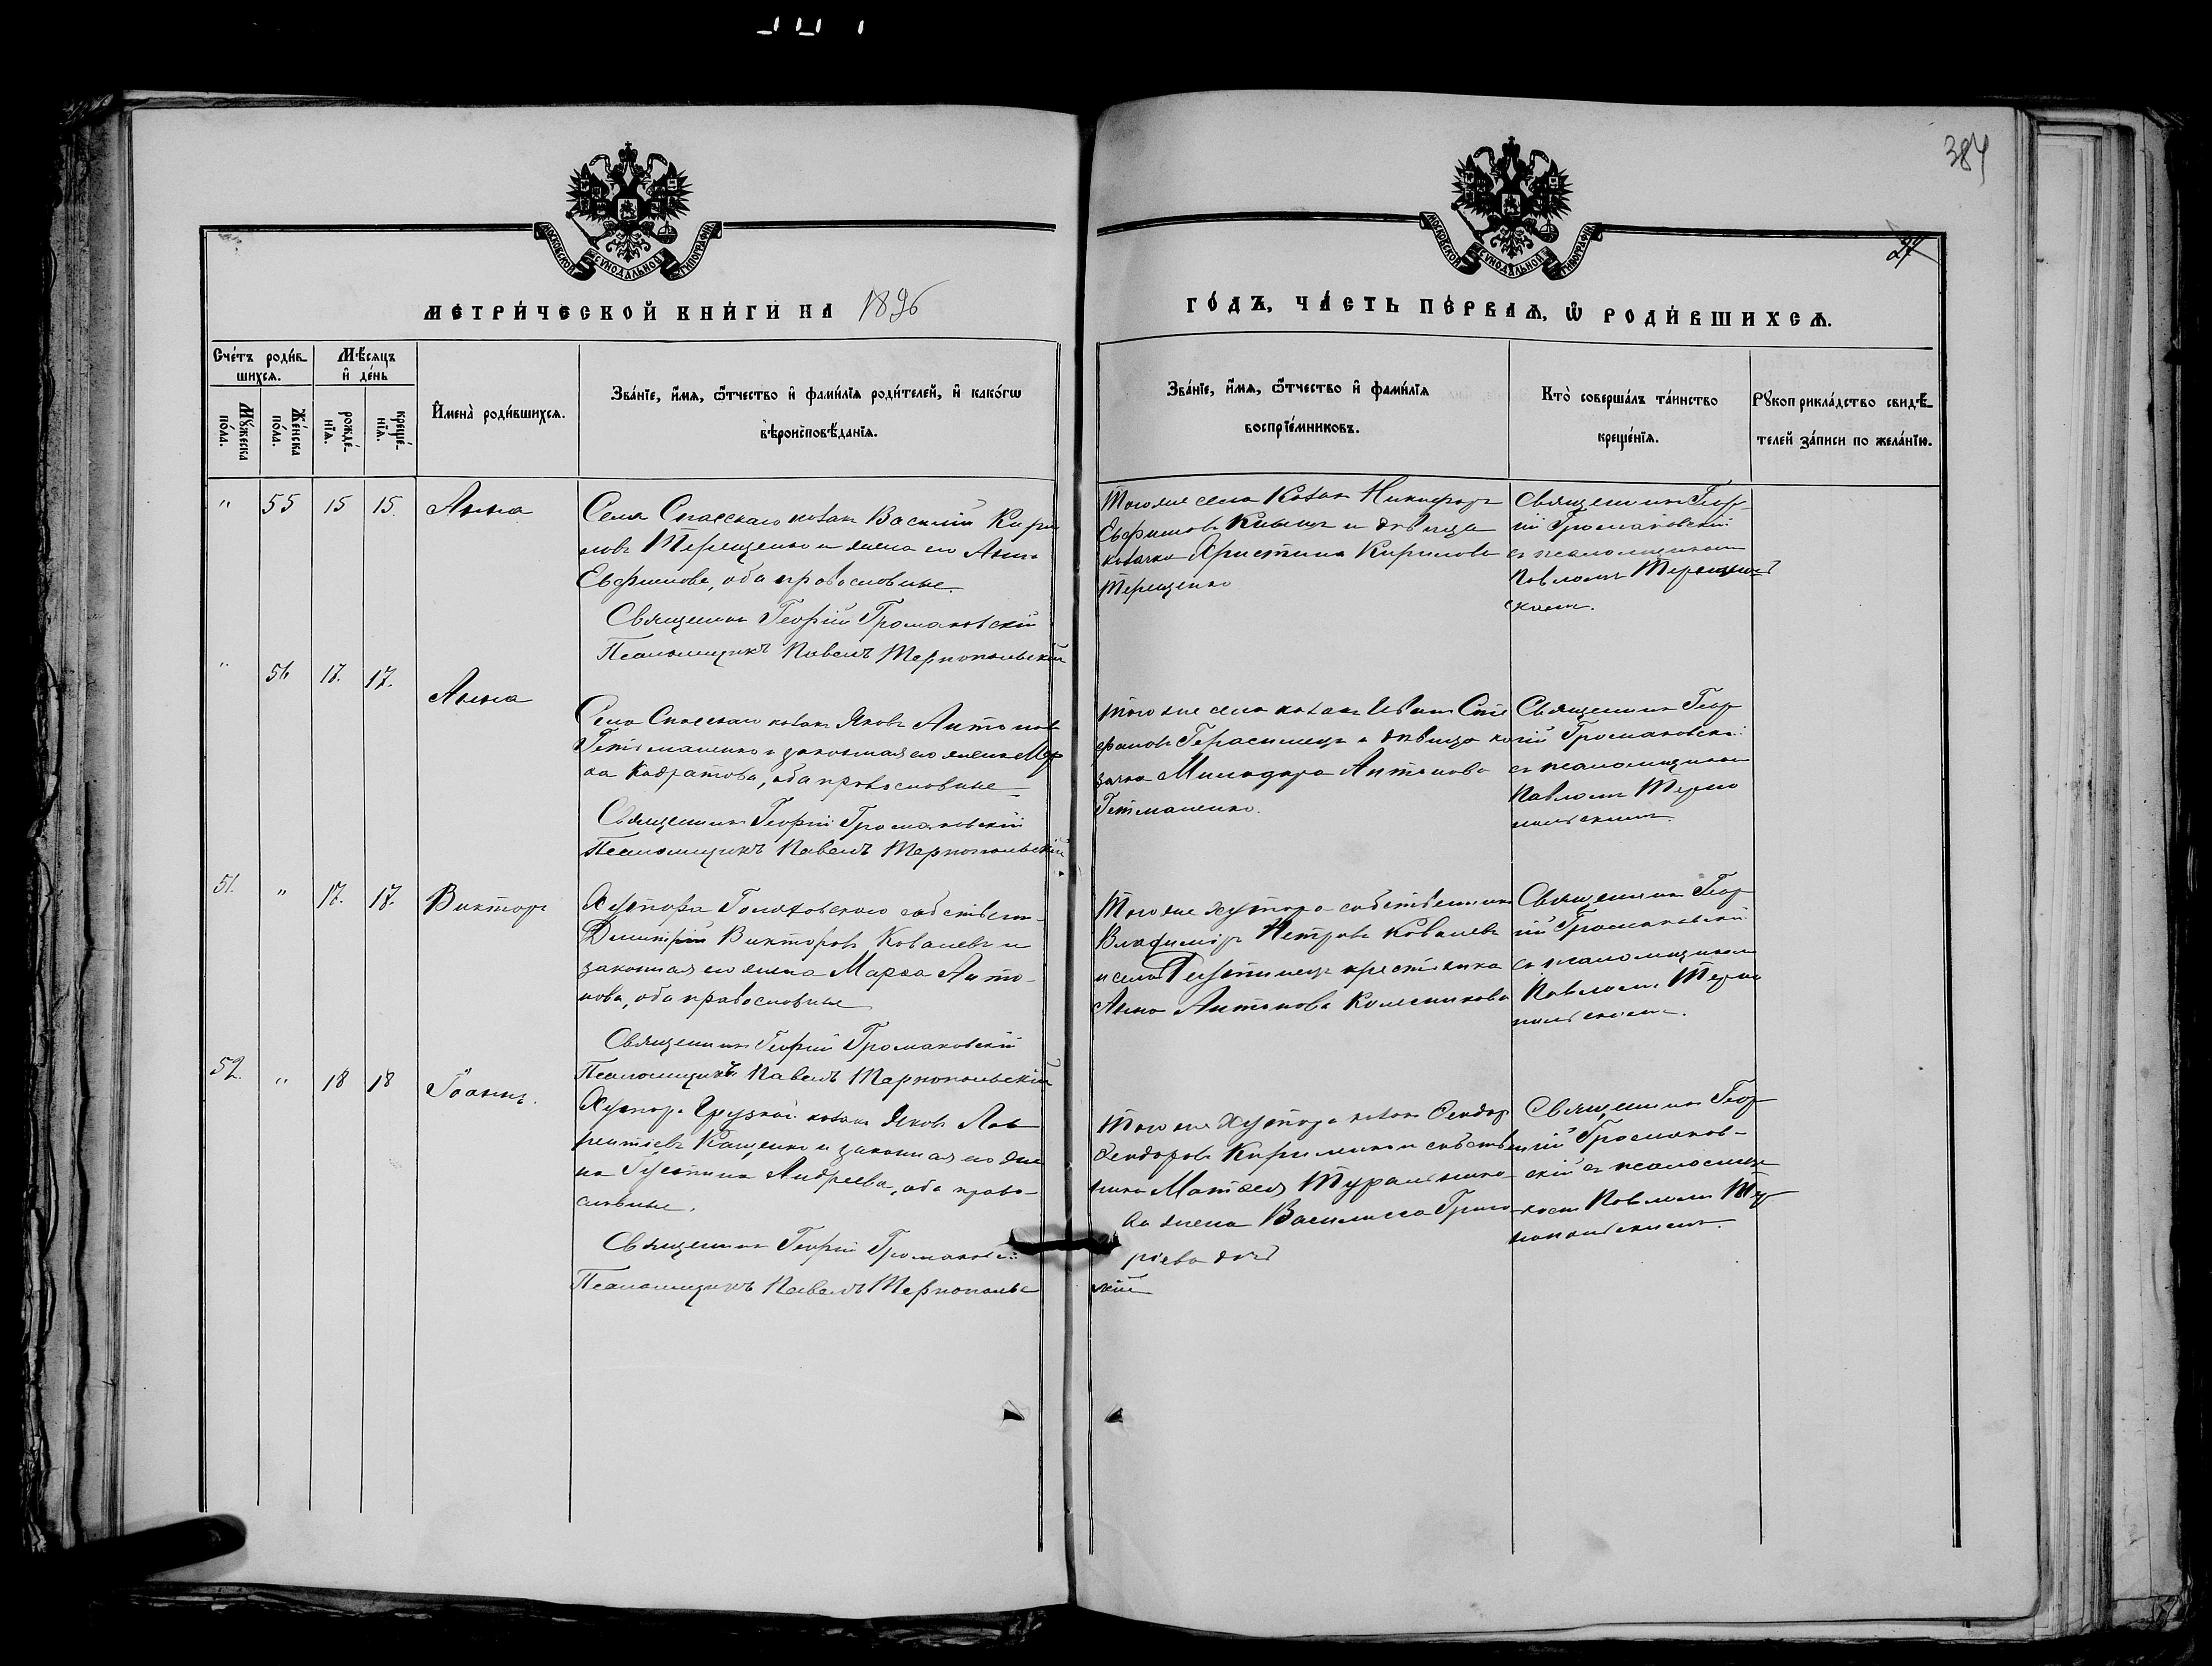 384
27
МОСКОВСКОЙ СѴНОДАЛЬНОЙ ТИПОГРАФІИ
МОСКОВСКОЙ СѴНОДАЛЬНОЙ ТИПОГРАФІИ
МЕТРИ́ЧЕСКОЙ КНИ́ГИ НА 1896
ГО́ДЪ, ЧА́СТЬ ПЕ́РВАѦ, Ѿ РОДИ́ВШИХСѦ.
Сче́тъ роди́в-
шихсѧ.
Мѣ́сяцъ
и҆ де́нь
Му́жеска
по́ла.
Же́нска
по́ла.
рожде́-
нїѧ.
креще́-
нїѧ.
И҆мена̀ роди́вшихсѧ.
Зва́нїе, и҆́мѧ, ѻ҆́тчество и҆ фами́лїѧ роди́телей, и҆ како́гѡ
вѣроисповѣ́данїѧ.
Зва́нїе, и҆́мѧ, ѻ҆́тчество и҆ фами́лїѧ
воспрїе́мниковъ.
Кто̀ соверша́лъ та́инство
креще́нїѧ.
Рꙋкоприкла́дство свидѣ́-
телей за́писи по жела́нїю.
" 55 15 15. Анна
Села Спасскаго козакъ Василій Кири
ловъ Терещенко и жена его Анна
Евфимова, оба православные.
Священникъ Георгій Громаковскій
Псаломщикъ Павелъ Тернопольскій
Того же села козакъ Никифоръ
Евфимовъ и дѣвица
козачка Христина Кирилова
Терещенко
Священникъ Геор-
гій Громаковскій
съ псаломщикомъ
Павломъ Тернополь
скимъ.
" 56 17. 17. Анна
Села Спасскаго козакъ Яковъ Антоновъ
Гетьманенко и законная его жена Мар
ѳа Кодратова, оба православные
Священникъ Георгій Громаковскій
Псаломщикъ Павелъ Тернопольскій
Того же села козакъ Иванъ Сте
фановъ Герасимецъ и дѣвица ко
зачка Антонова
Гетманенко.
Священникъ Геор
гій Громаковскій
съ псаломщикомъ
Павломъ Терно
польскимъ.
51. " 17. 17. Викторъ
Хутора собственн.
Дмитрій Викторовъ Ковалевъ и
законная его жена Марѳа Анто-
нова, оба православные
Священникъ Георгій Громаковскій
Псаломщикъ Павелъ Тернопольскій
Того же хутора собственникъ
Владиміръ Петровъ Ковалевъ
и села крестьянка
Анна Антонова Колесникова
Священникъ Геор
гій Громаковскій
съ псаломщикомъ
Павломъ Терно
польскимъ.
52. " 18 18 Іоаннъ.
Хутора Грузкой козакъ Яковъ Лав
рентіевъ Кащенко и законная его же
на Іустина Андреева, оба право-
славные.
Священникъ Георгій Громаковскій
Псаломщикъ Павелъ Тернопольс
кій
Того же хутора козакъ Ѳеодоръ
Ѳеодоровъ и собствен
ника Матѳея
ка жена Василисса Григо
ріева дочь
Священникъ Геор
гій Громаков-
скій съ псаломщи
комъ Павломъ Тер
нопольскимъ.